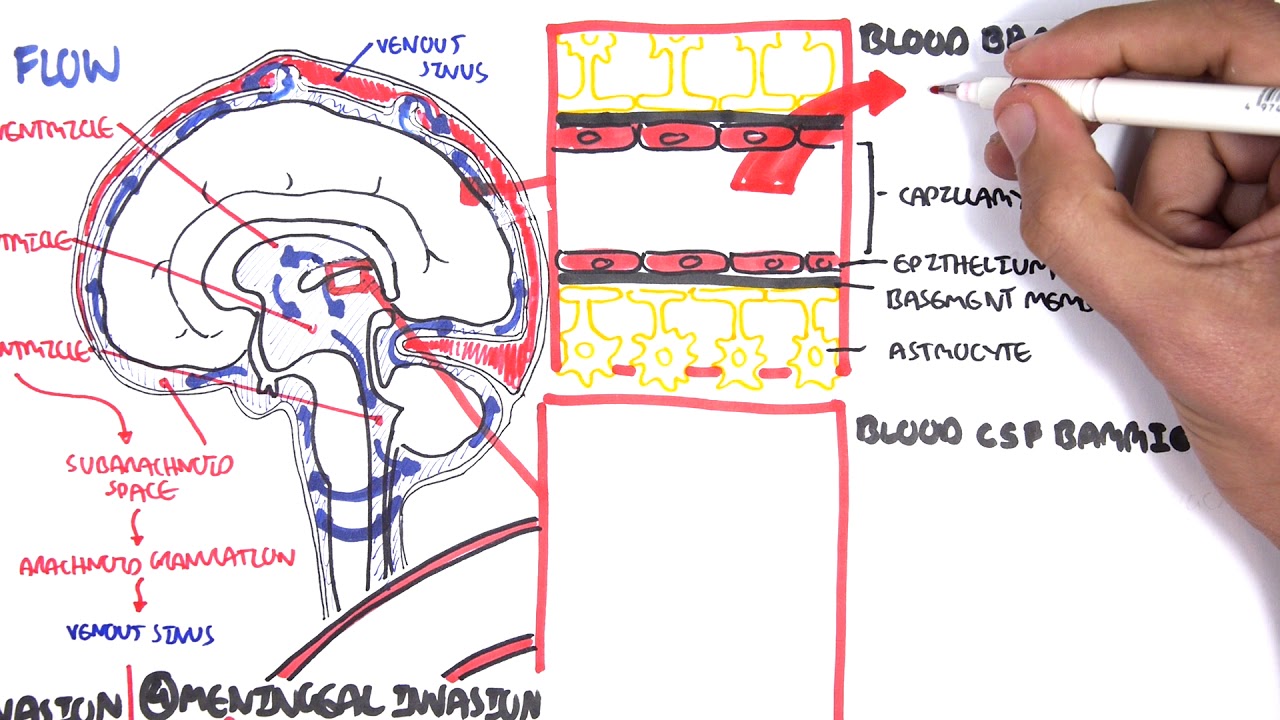 FLOW
VENOUS
SINUS
VENTRICLE
NTRICLE
NTRICLE
SUBARACHNOID
SPACE
ARACHNOID GRANULATION
VENOUS SINUS
VASION
④ MENINGEAL INVASION
BLOOD BRA
CAPILLARY
EPITHELIUM
BASEMENT MEMB
ASTROCYTE
BLOOD CSF BARRIE